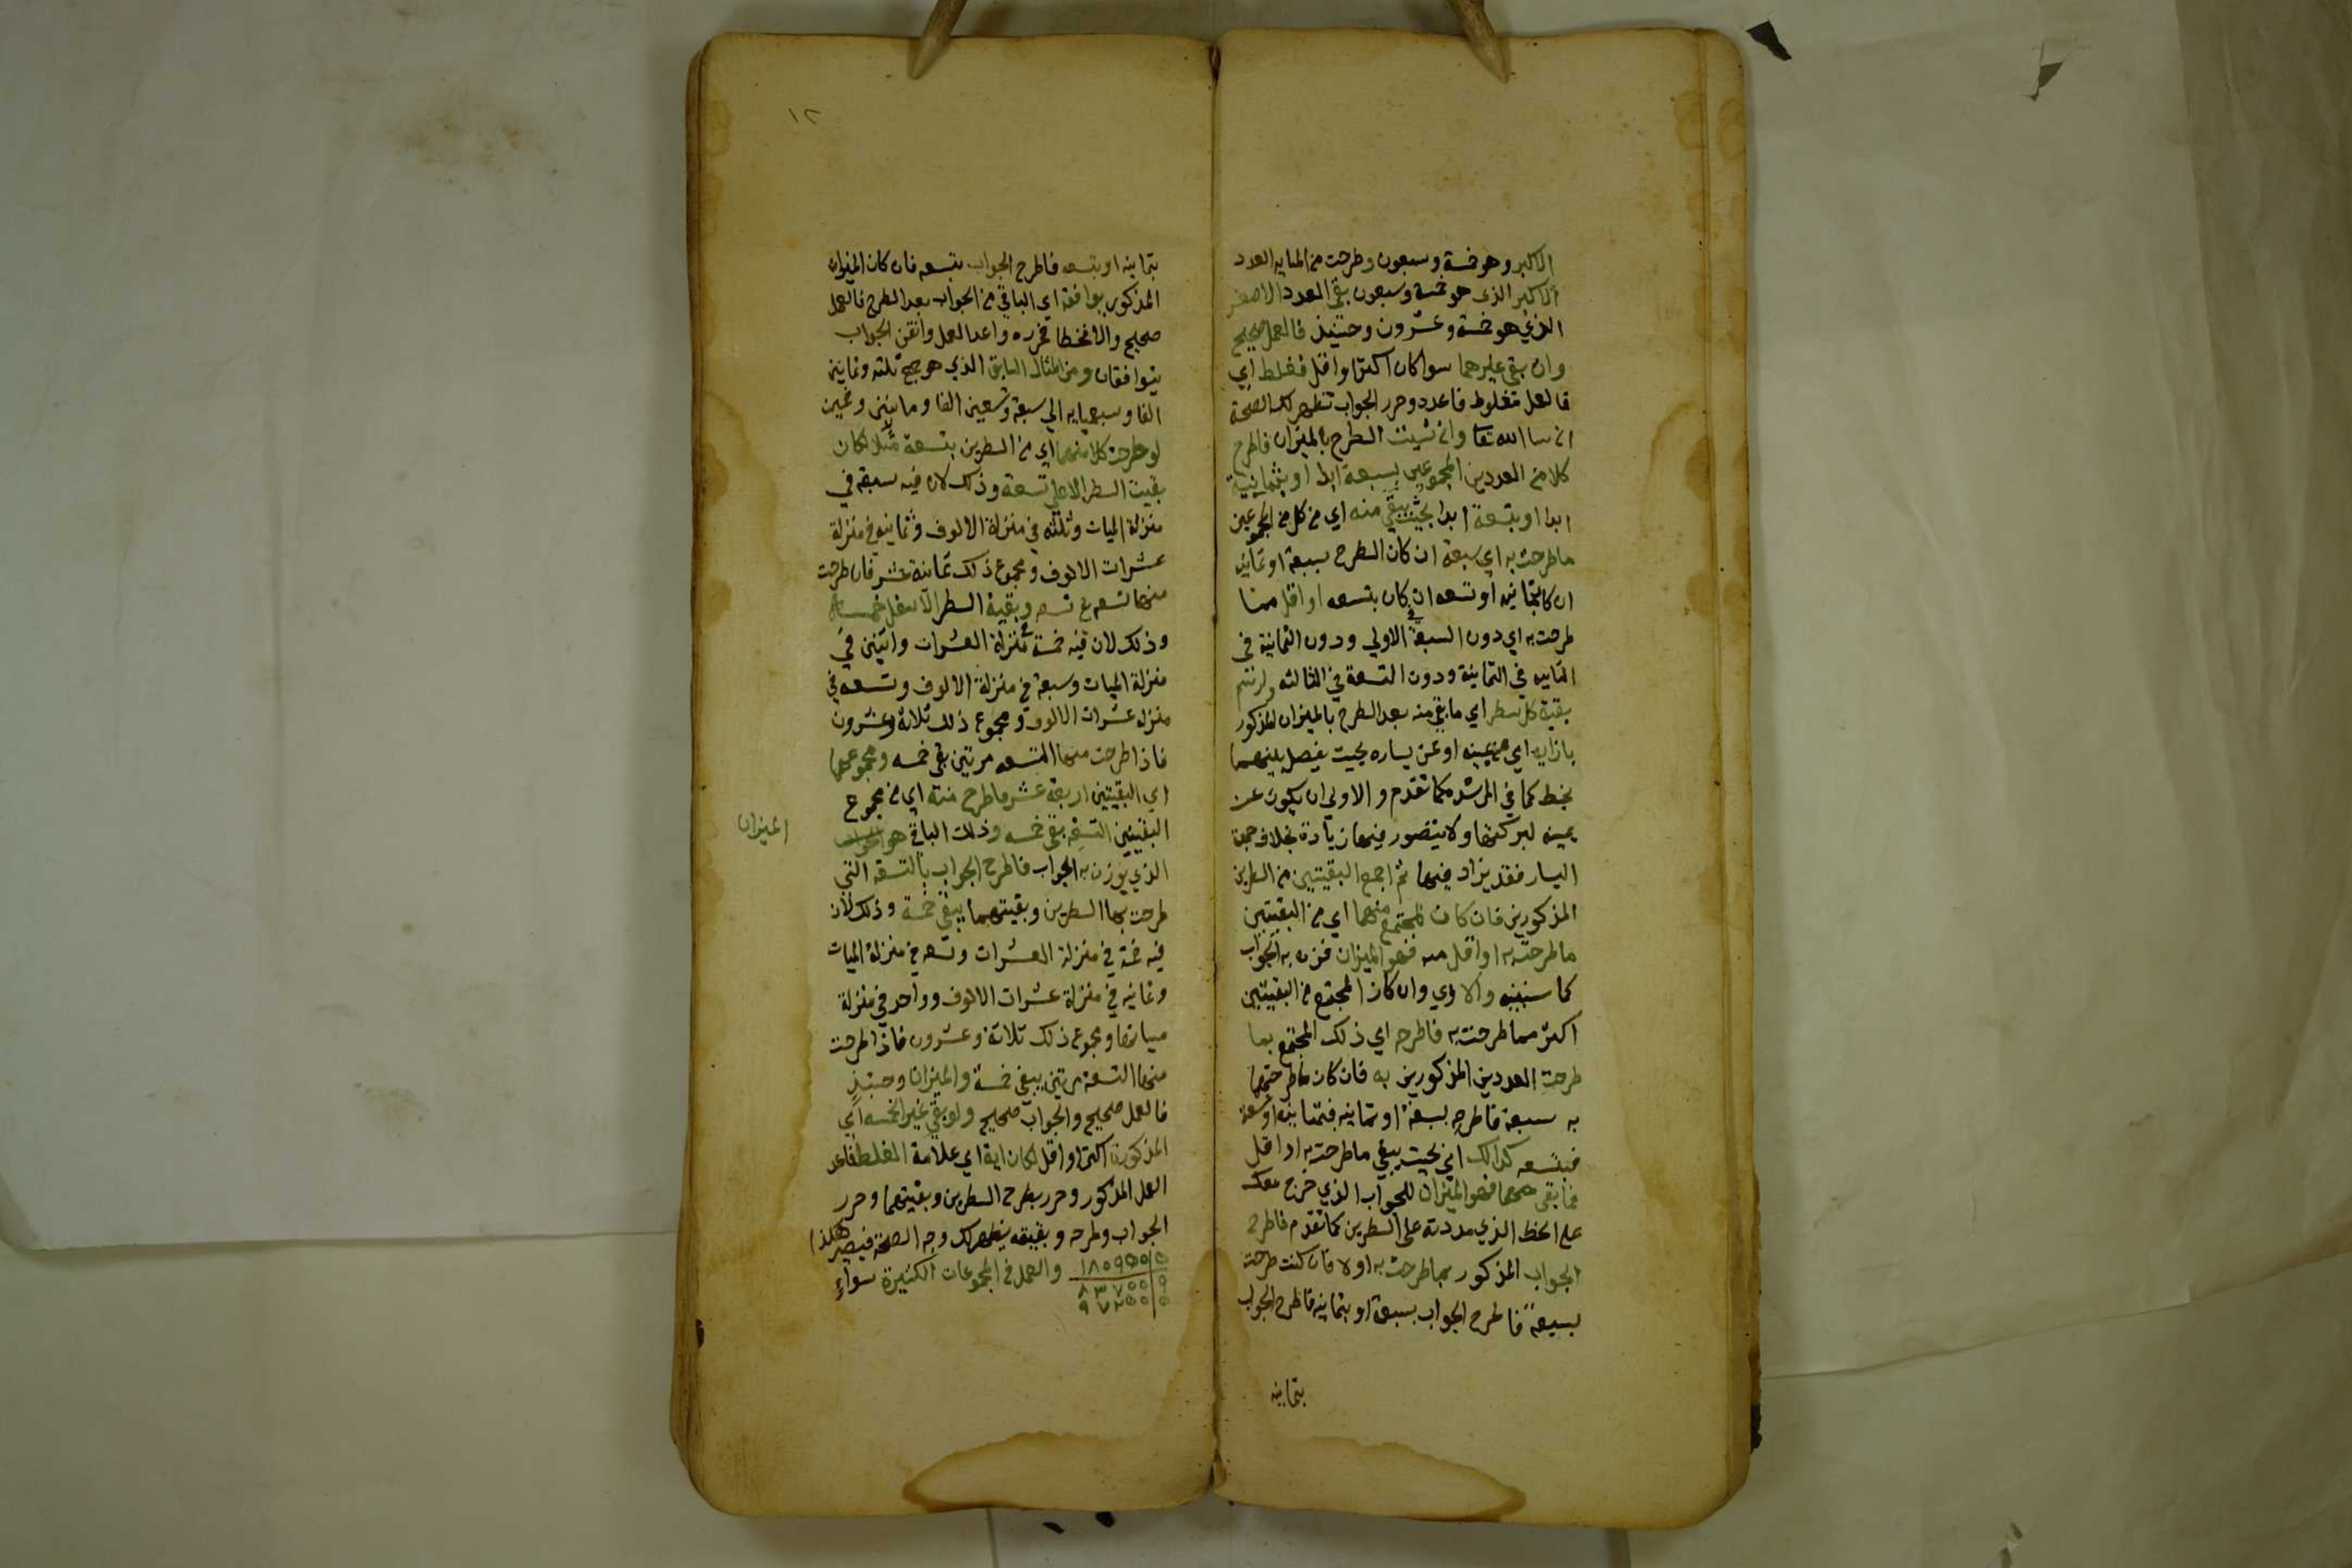 الاكبر وهو خمسة وسبعون وطرحت من المايه العدد
الاكبر الذي هو خمسة وسبعون بقي العدد الاصغر
الذي هو خمسة وعشرون وحينيذ فالعمل صحيح
وان بقي غيرهما سوا كان اكثر او اقل فغلط اي
فالعمل مغلوط فاعده وحرر الجواب تظهر لك الصحة
ان شا الله تعا وان شيت الطرح بالميزان فاطرح
كلا من العددين المجموعين بسبعة ابدا او بثمانية
ابدا او بتسعة ابدا بحيث يبقي منه اي من كل من المجموعين
ما طرحت به اي سبعة ان كان الطرح بسبعة او ثمانيه
ان كان بثمانيه او تسعه ان كان بتسعه او اقل مما
طرحت به اي دون السبعة في الاولي ودون الثمانية في
الثانيه في الثمانية ودون التسعة في الثالثه وارسم
بقية كل سطر اي ما بقي منه بعد الطرح بالميزان المذكور
بازايه اي عن يمينه او عن يساره بحيث يفصل بينهما
بخط كما في المرشده كما تقدم والاولي ان يكون عن
يمينه لبركتها ولا يتصور فيها زيادة بخلاف جهة
اليسار فقد يزاد فيها ثم اجمع البقيتين من السطرين
المذكورين فان كان المجتمع منهما اي من البقيتين
ما طرحت به او اقل منه فهو الميزان فزن به الجواب
كما سنبينه والا اي وان كان المجتمع من البقيتين
اكثر مما طرحت به فاطرحه اي ذلك المجتمع بما
طرحت العددين المذكورين به فان كان ما طرحتهما
به سبعة فاطرحه بسبعة او ثمانيه فبثمانيه او تسعة
فبتسعه كذلك اي بحيث يبقي ما طرحت به او اقل
فما بقي منهما فهو الميزان للجواب الذي خرج معك
علي الخط الذي مددته علي السطرين كما تقدم فاطرح
الجواب المذكور بما طرحت به اولا فان كنت طرحت
بسبعة فاطرح الجواب بسبعة او بثمانيه فاطرح الجواب
بثمانيه
١٢
بثمانيه او بتسعه فاطرح الجواب بتسعه فان كان الميزان
المذكور يوافقه اي الباقي من الجواب بعد الطرح فالعمل
صحيح والا فخطا فحرره واعد العمل واتقن الجواب
يتوافقان ومن المثال السابق الذي هو جمع ثلثه وثمانين
الفا وسبعمايه الي سبعة وتسعين الفا ومايتين وخمسين
لو طرحت كلا منهما اي من السطرين بتسعة مثلا لكان
بقيت السطر الاعلي تسعة وذلك لان فيه سبعة في
منزلة الميات وثلثه في منزلة الالوف وثمانيه في منزلة
عشرات الالوف ومجموع ذلك ثمانية عشر فان طرحت
منها تسعه ع تسعه وبقية السطر الاسفل خمسة
وذلك لان فيه خمسة في منزلة العشرات واثنين في
منزلة الميات وسبعة في منزلة الالوف وتسعه في
منزله عشرات الالوف ومجموع ذلك ثلاثة وعشرون
فاذا طرحت منها التسعه مرتين بقي خمسه ومجموعهما
اي البقيتين اربعة عشر فاطرح منه اي من مجموع
البقيتين التسعه بقي خمسه وذلك الباقي هو
الميزان
الذي يوزن به الجواب فاطرح الجواب بالتسعة التي
طرحت بها السطرين وبقيتهما يبقي خمسة وذلك لان
فيه خمسة في منزلة العشرات وتسعه في منزلة الميات
وثمانيه في منزلة عشرات الالوف وواحد في منزلة
مياتها ومجموع ذلك ثلاثة وعشرون فاذا طرحت
منها التسعة مرتين يبقي خمسة والميزان وحينيذ
فالعمل صحيح والجواب صحيح ولو بقي غير الخمسه اي
المذكورة اكثر او اقل لكان اية اي علامة الغلط فاعد
العمل المذكور وحرر بطرح السطرين وبقيتهما وحرر
الجواب وطرحه وبقيته يظهر لك وجه الصحة فيصير هكذا
١٨٠٩٥٠|٥ والعمل في المجموعات الكثيرة سواء
٨٣٧٠٠|٩
٩٧٢٥٠|٥